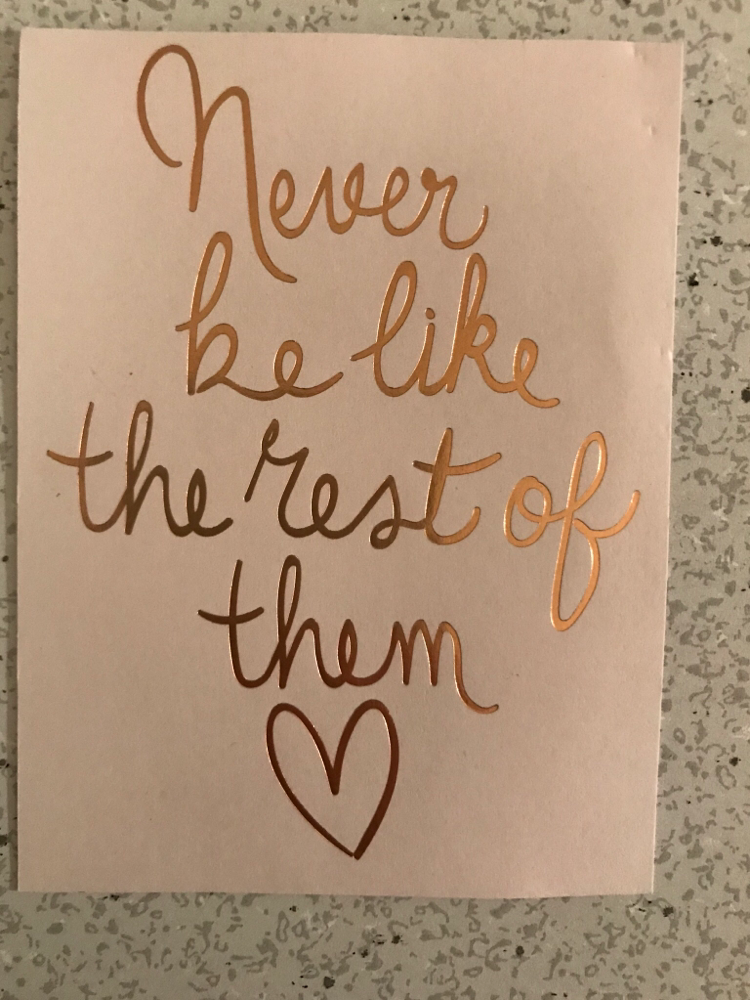 Never
be like
the rest of
them